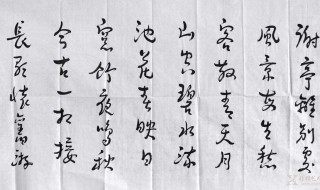 謝亭離別處
風景每生愁
客散青天月
山空碧水流
池花春映日
窓竹夜鳴秋
今古一相接
長歌懷舊游